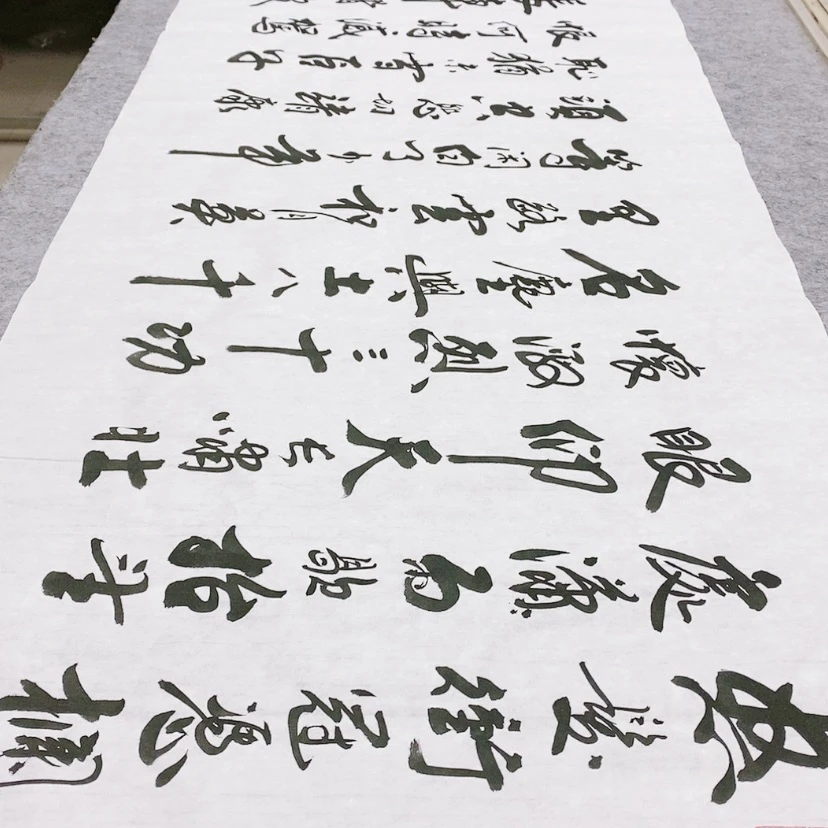 怒髮衝冠憑欄
處瀟雨歇抬望
眼仰天長嘯壯
懷激烈三十功
名塵與土八千
里路雲和月莫
等閒白了少年
頭空悲切靖康
恥猶未雪臣子
恨何時滅駕長